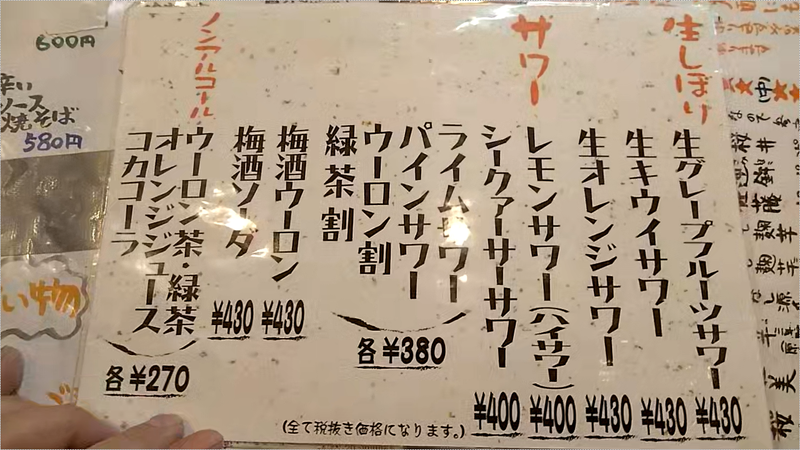 生しぼり
サワー
生グレープフルーツサワー
¥430
生キウイサワー
¥430
生オレンジサワー
¥430
レモンサワー(ハイサワー)
¥400
シークァーサーサワー
¥400
ライムサワー
パインサワー
ウーロン割
緑茶割
各¥380
梅酒ウーロン
¥430
梅酒ソーダ
¥430
ノンアルコール
ウーロン茶・緑茶
オレンジジュース
コカコーラ
各¥270
(全て税抜き価格になります。)
600円
辛い
ソース
焼そば
580円
い物